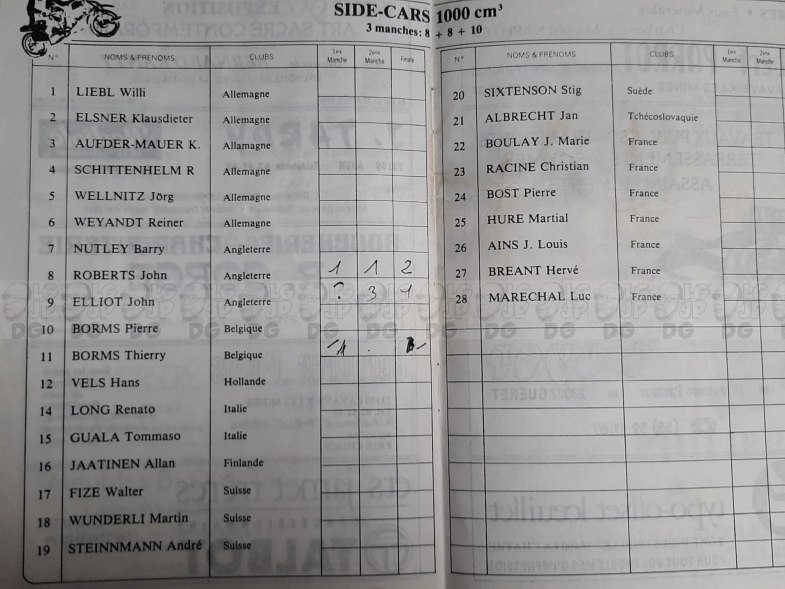 SIDE-CARS 1000 cm³
3 manches: 8 + 8 + 10
N° NOMS & PRÉNOMS CLUBS 1ère Manche 2ème Manche Finale
1 LIEBL Willi Allemagne
2 ELSNER Klausdieter Allemagne
3 AUFDER-MAUER K. Allamagne
4 SCHITTENHELM R Allemagne
5 WELLNITZ Jörg Allemagne
6 WEYANDT Reiner Allemagne
7 NUTLEY Barry Angleterre
8 ROBERTS John Angleterre 1 1 2
9 ELLIOT John Angleterre ? 3 1
10 BORMS Pierre Belgique
11 BORMS Thierry Belgique
12 VELS Hans Hollande
14 LONG Renato Italie
15 GUALA Tommaso Italie
16 JAATINEN Allan Finlande
17 FIZE Walter Suisse
18 WUNDERLI Martin Suisse
19 STEINNMANN André Suisse
N° NOMS & PRÉNOMS CLUBS 1ère Manche 2ème Manche
20 SIXTENSON Stig Suède
21 ALBRECHT Jan Tchécoslovaquie
22 BOULAY J. Marie France
23 RACINE Christian France
24 BOST Pierre France
25 HURE Martial France
26 AINS J. Louis France
27 BREANT Hervé France
28 MARECHAL Luc France